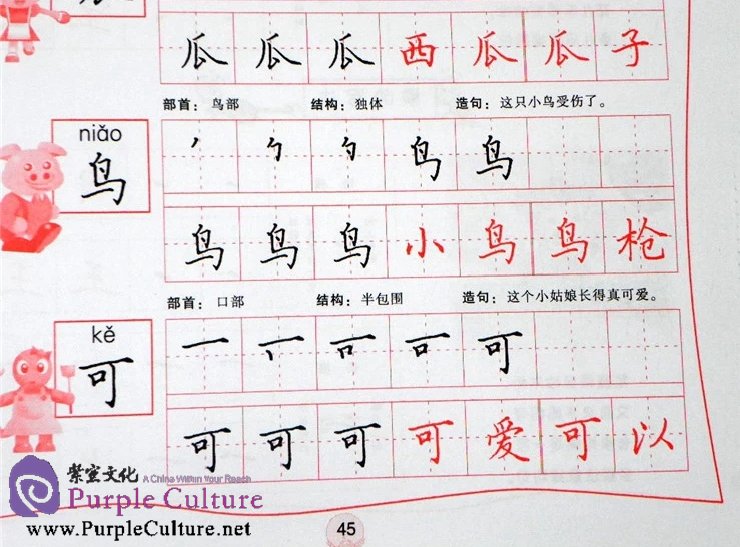 瓜 瓜 瓜 西 瓜 瓜 子
部首：鸟部 结构：独体 造句：这只小鸟受伤了。
niǎo
鸟
鸟 鸟
鸟 鸟 鸟 小 鸟 鸟 枪
部首：口部 结构：半包围 造句：这个小姑娘长得真可爱。
kě
可
一 可
可 可 可 可 爱 可 以
紫室文化 A China Within Your Reach
Purple Culture
www.PurpleCulture.net
45